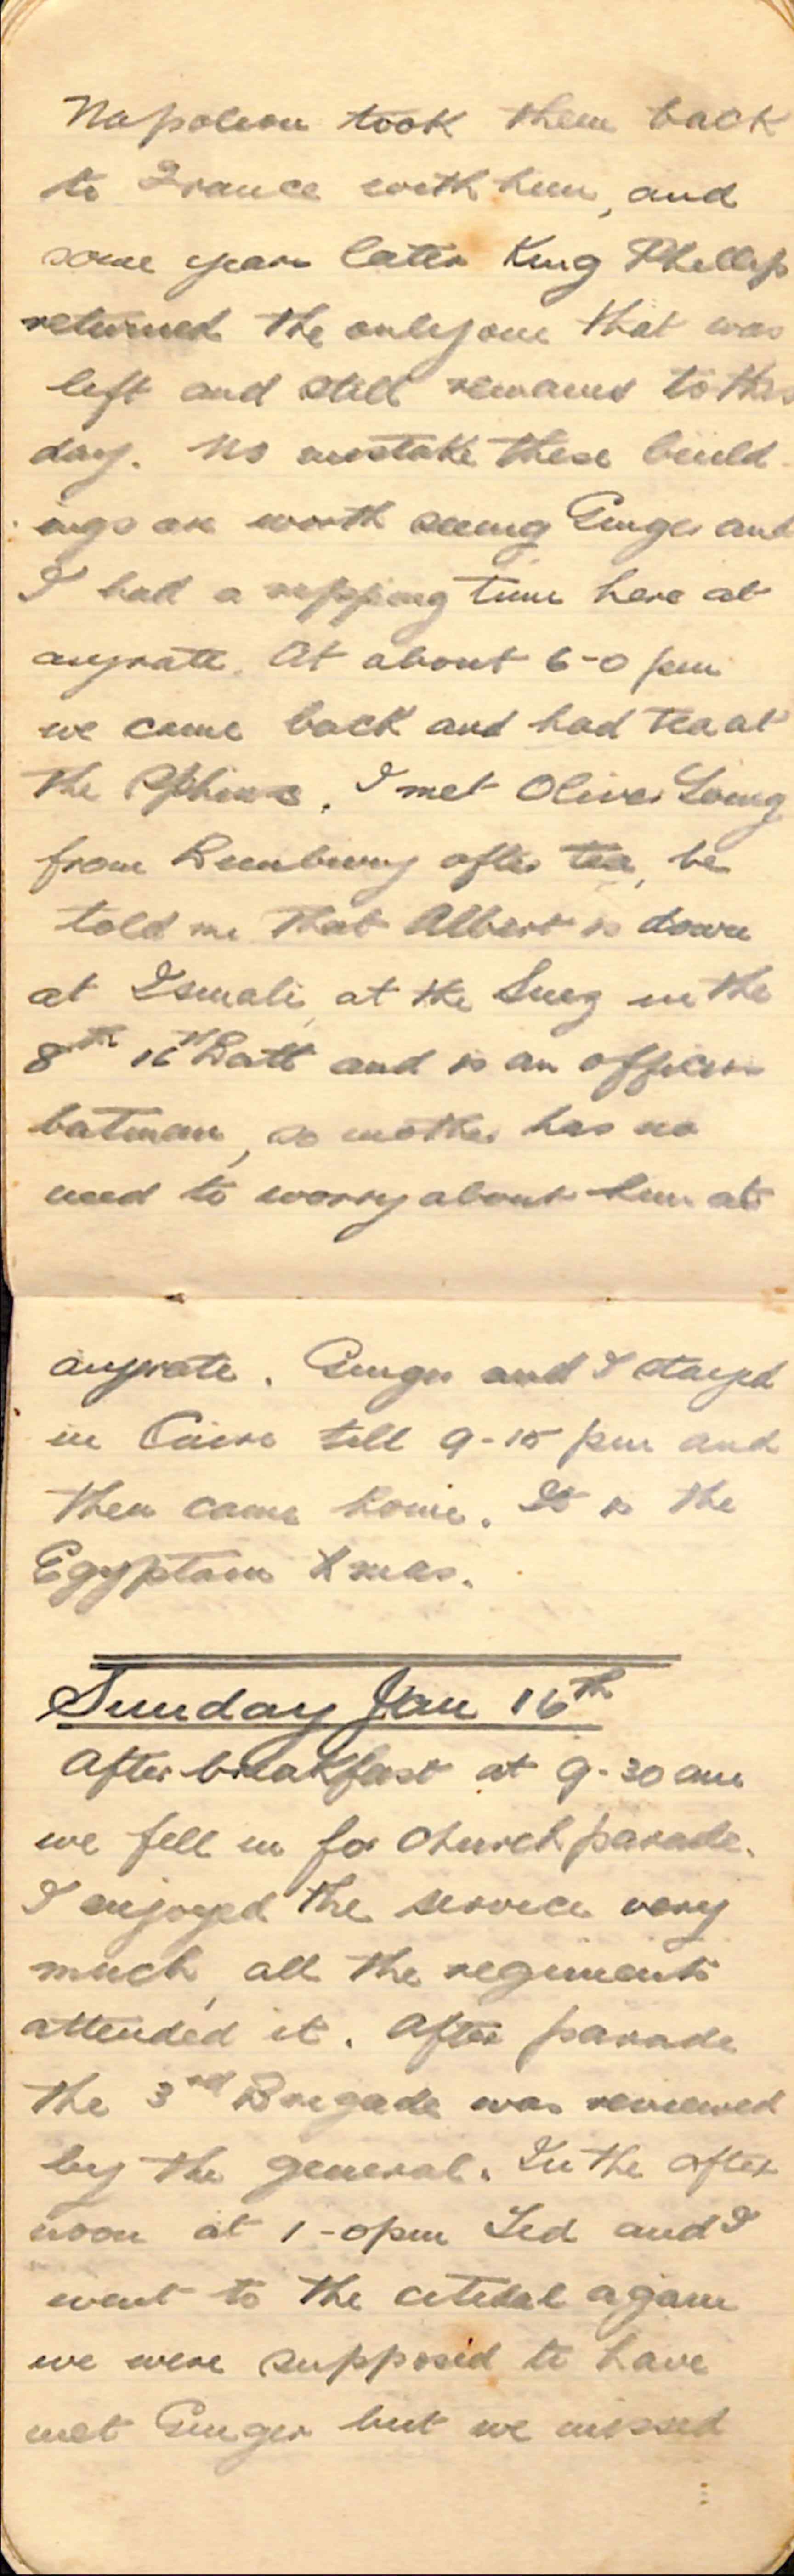 Napoleon took them back
to France with him, and
some years later King Phillip
returned the only one that was
left and still remains to this
day. No mistake these build-
ings are worth seeing Ginger and
I had a ripping time here at
anyrate. At about 6-0 pm
we came back and had tea at
the Sphinx. I met Oliver
from Bunbury after tea, he
told me that Albert is down
at Ismali, at the Suez in the
8th 16th Batt and is an officers
batman, so mother has no
need to worry about him at
anyrate. Ginger and I stayed
in Cairo till 9-15 pm and
then came home. It is the
Egyptain Xmas.
Sunday Jan 16th
After breakfast at 9-30 am
we fell in for Church parade.
I enjoyed the service very
much, all the regiments
attended it. After parade
the 3rd Brigade was reviewed
by the general. In the after
noon at 1-0pm Ted and I
went to the citidal again
we were supposed to have
met Ginger but we missed